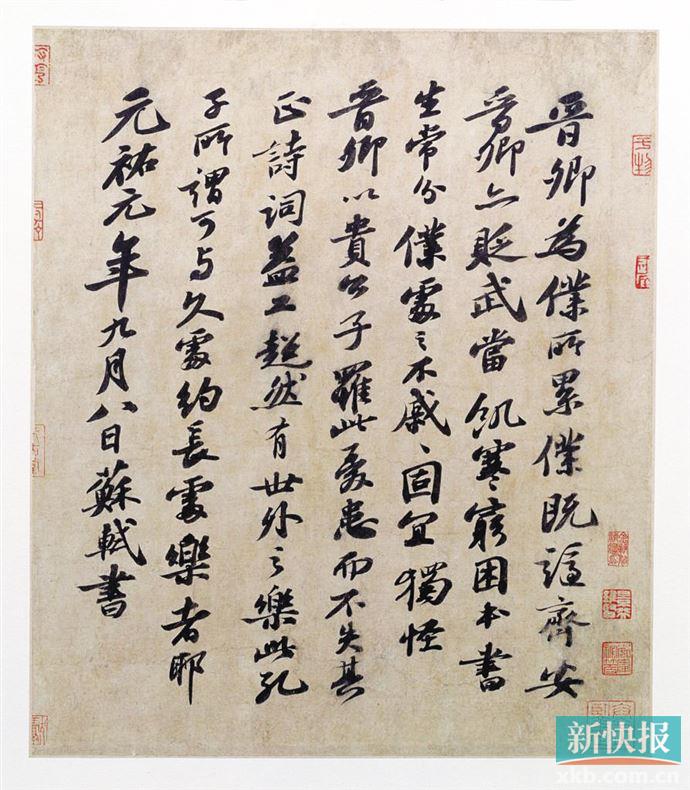 晉卿為僕所累僕既謫齊安
晉卿亦貶武當飢寒窮困本書
生常分僕處之不戚戚固宜獨怪
晉卿以貴公子罹此憂患而不失其
正詩詞益工超然有世外之樂此孔
子所謂可與久處約長處樂者耶
元祐元年九月八日蘇軾書
新快报
xkb.com.cn